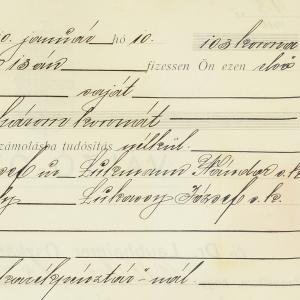 0. január hó 10. 103 korona
13án fizessen Ön ezen első
saját
három koronát
számolásba tudósítás nélkül.
sef us Lukmann Nándor s.k.
Lukavy József s.k.
takarékpénztár"-nál.